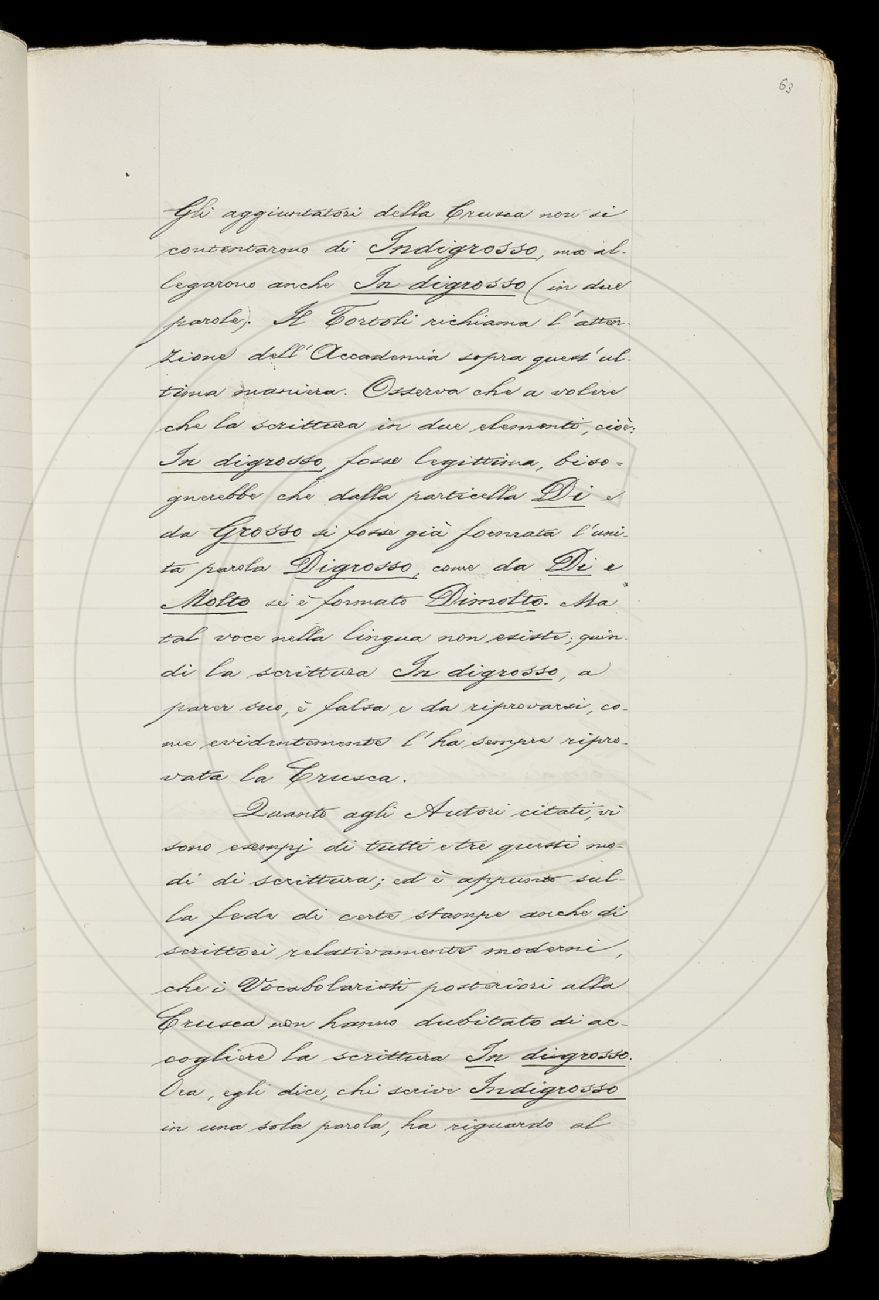 63
Gli aggiuntatori della Crusca non si
contentarono di Indigrosso, ma al-
legarono anche In digrosso (in due
parole). Il Tortoli richiama l'atten-
zione dell'Accademia sopra quest'ul-
tima maniera. Osserva che a volere
che la scrittura in due elementi, cioè:
In digrosso, fosse legittima, biso-
gnerebbe che dalla particella Di e
da Grosso si fosse già formata l'uni-
ta parola Digrosso, come da Di e
Molto si è formato Dimolto. Ma
tal voce nella lingua non esiste; quin-
di la scrittura In digrosso, a
parer suo, è falsa e da riprovarsi, co-
me evidentemente l'ha sempre ripro-
vata la Crusca.
Quanto agli Autori citati, vi
sono esempj di tutti e tre questi mo-
di di scrittura; ed è appunto sul-
la fede di certe stampe anche di
scrittori relativamente moderni,
che i Vocabolaristi posteriori alla
Crusca non hanno dubitato di ac-
cogliere la scrittura In digrosso.
Ora, egli dice, chi scrive Indigrosso
in una sola parola, ha riguardo al